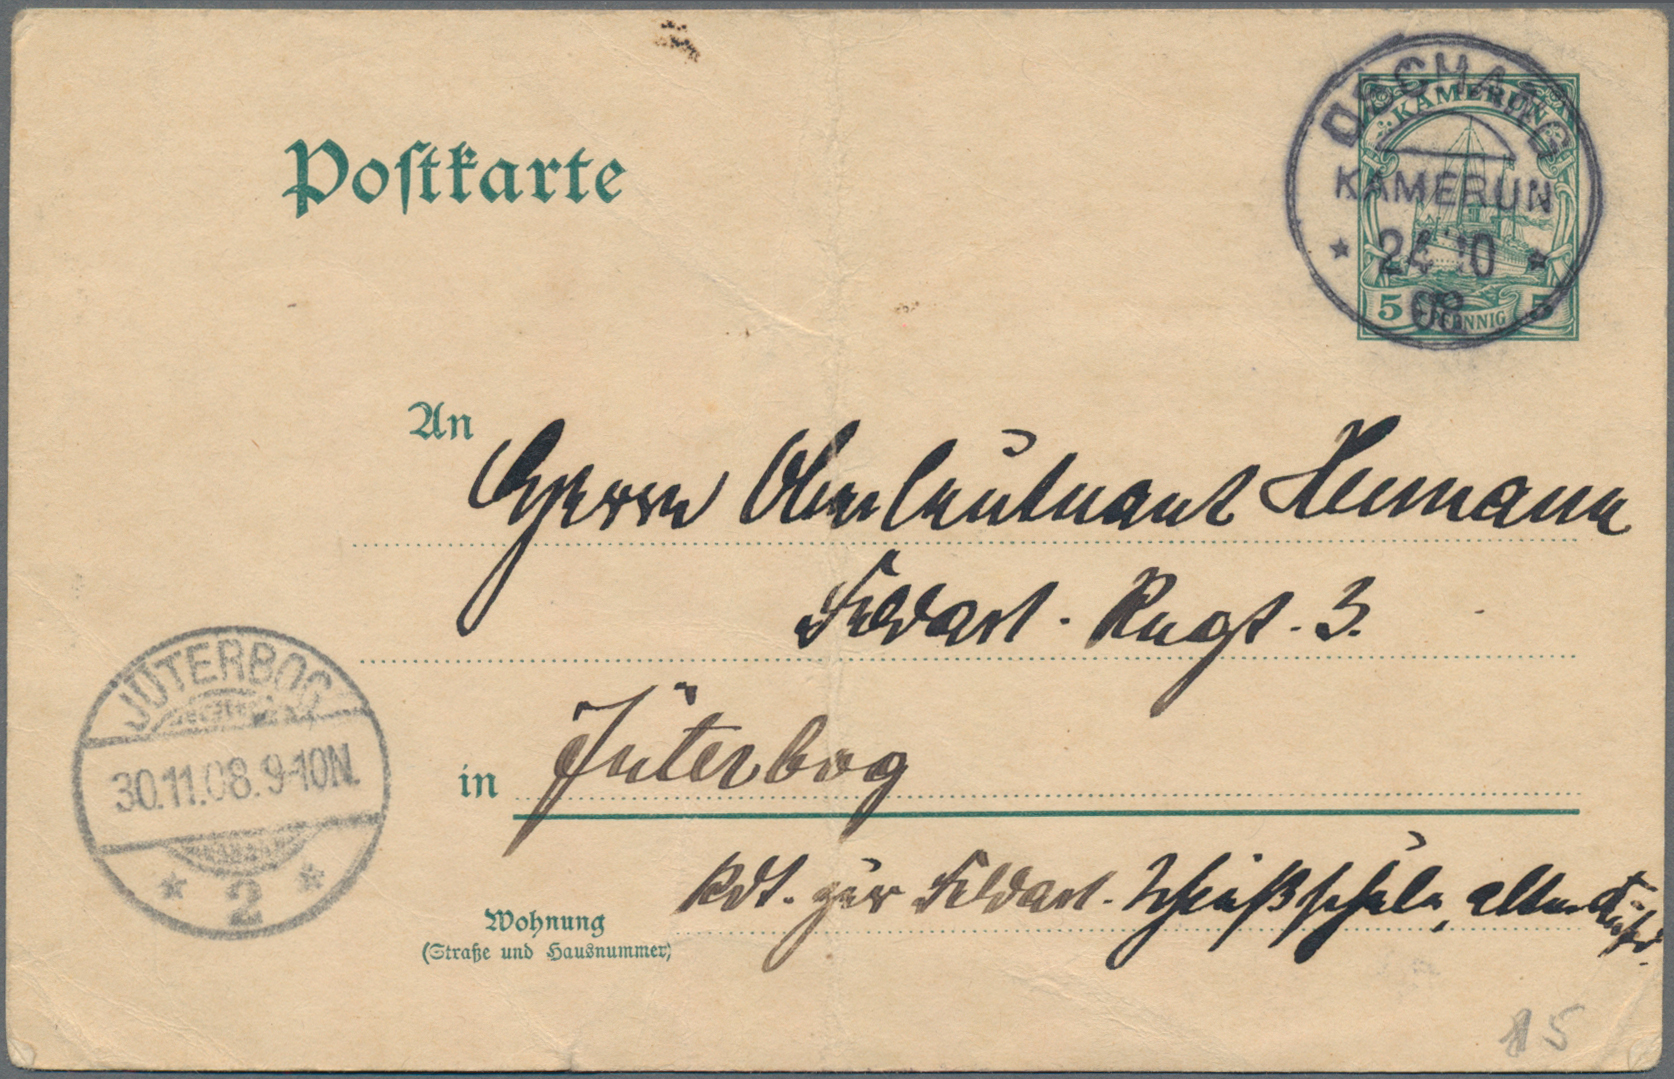 Postkarte
KAMERUN
5 PFENNIG 5
DSCHANG
KAMERUN
* 24 10 *
08
An
Herrn Oberleutnant Heumann
Feldart. Regt. 3.
in Jüterbog
JÜTERBOG
30.11.08.9-10N.
* 2 *
Wohnung
(Straße und Hausnummer)
Kdt. zur Feldart. Schießschule, altes
5